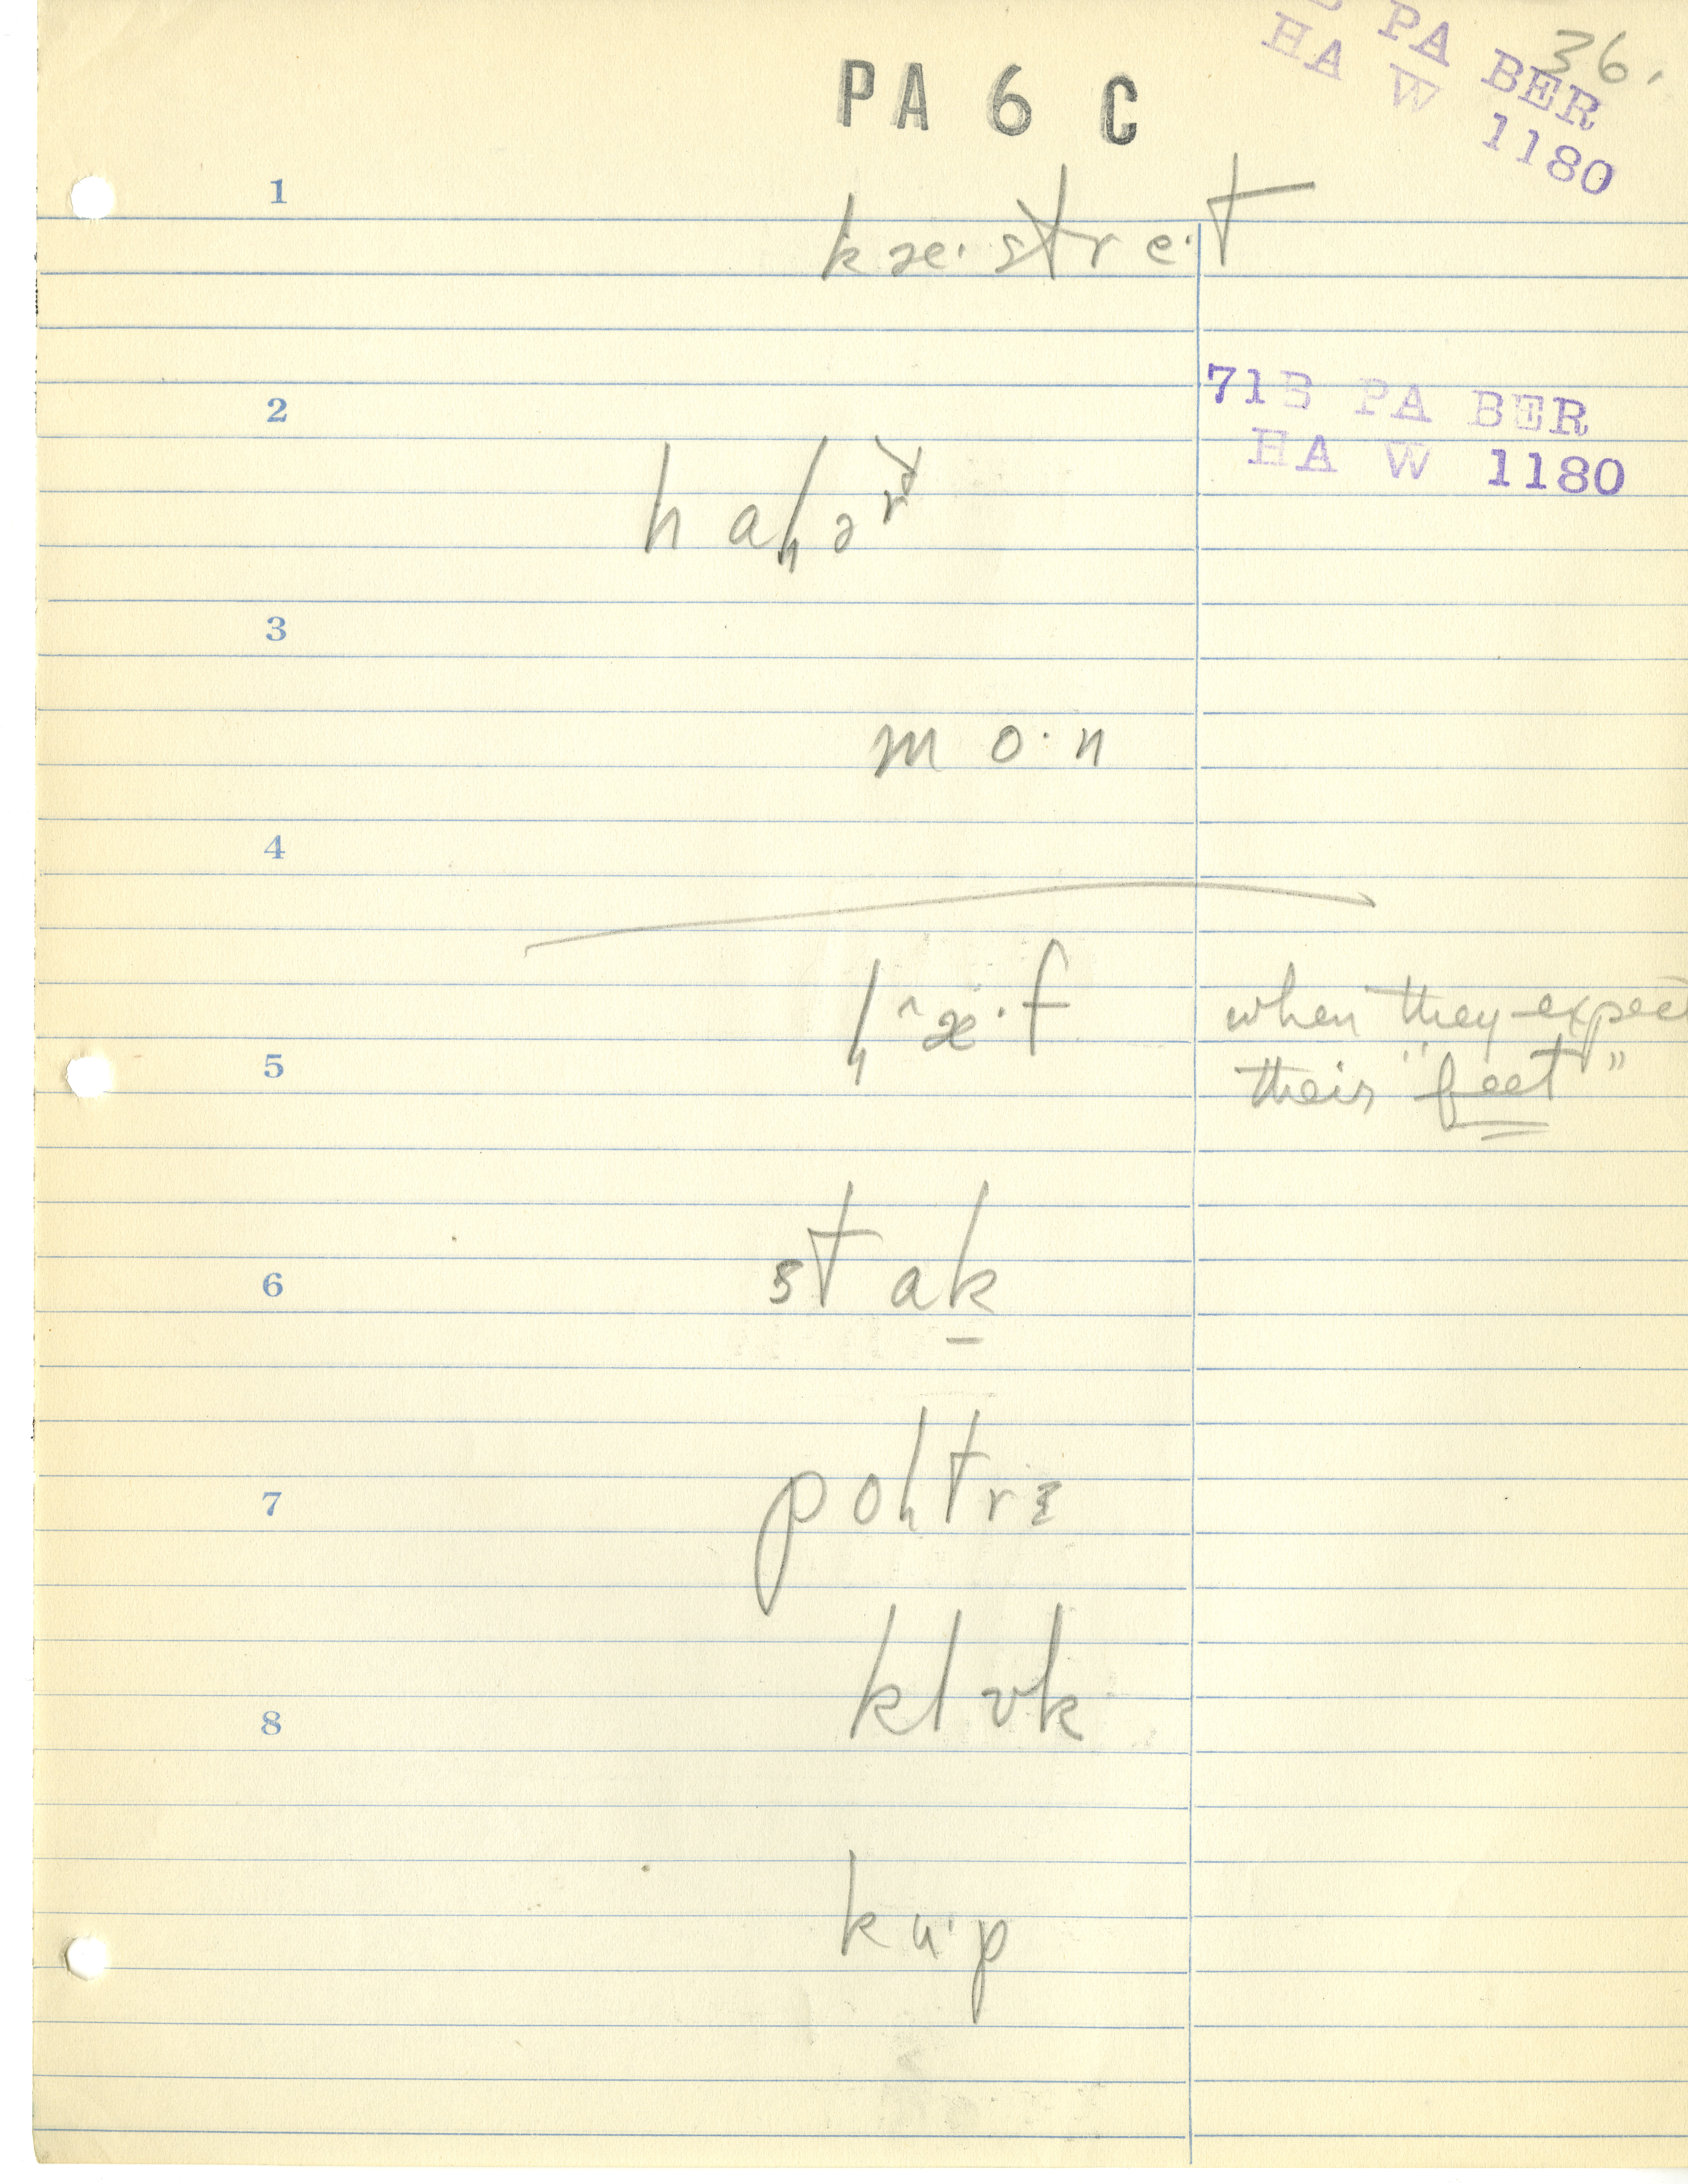 B PA BER
HA W 1180
36.
PA 6 C
1
kæ·stre·t
2
71B PA BER
HA W 1180
3
mo·n
4
when they expect
their "feet"
5
stak̠
6
7
klʊk
8
ku·p